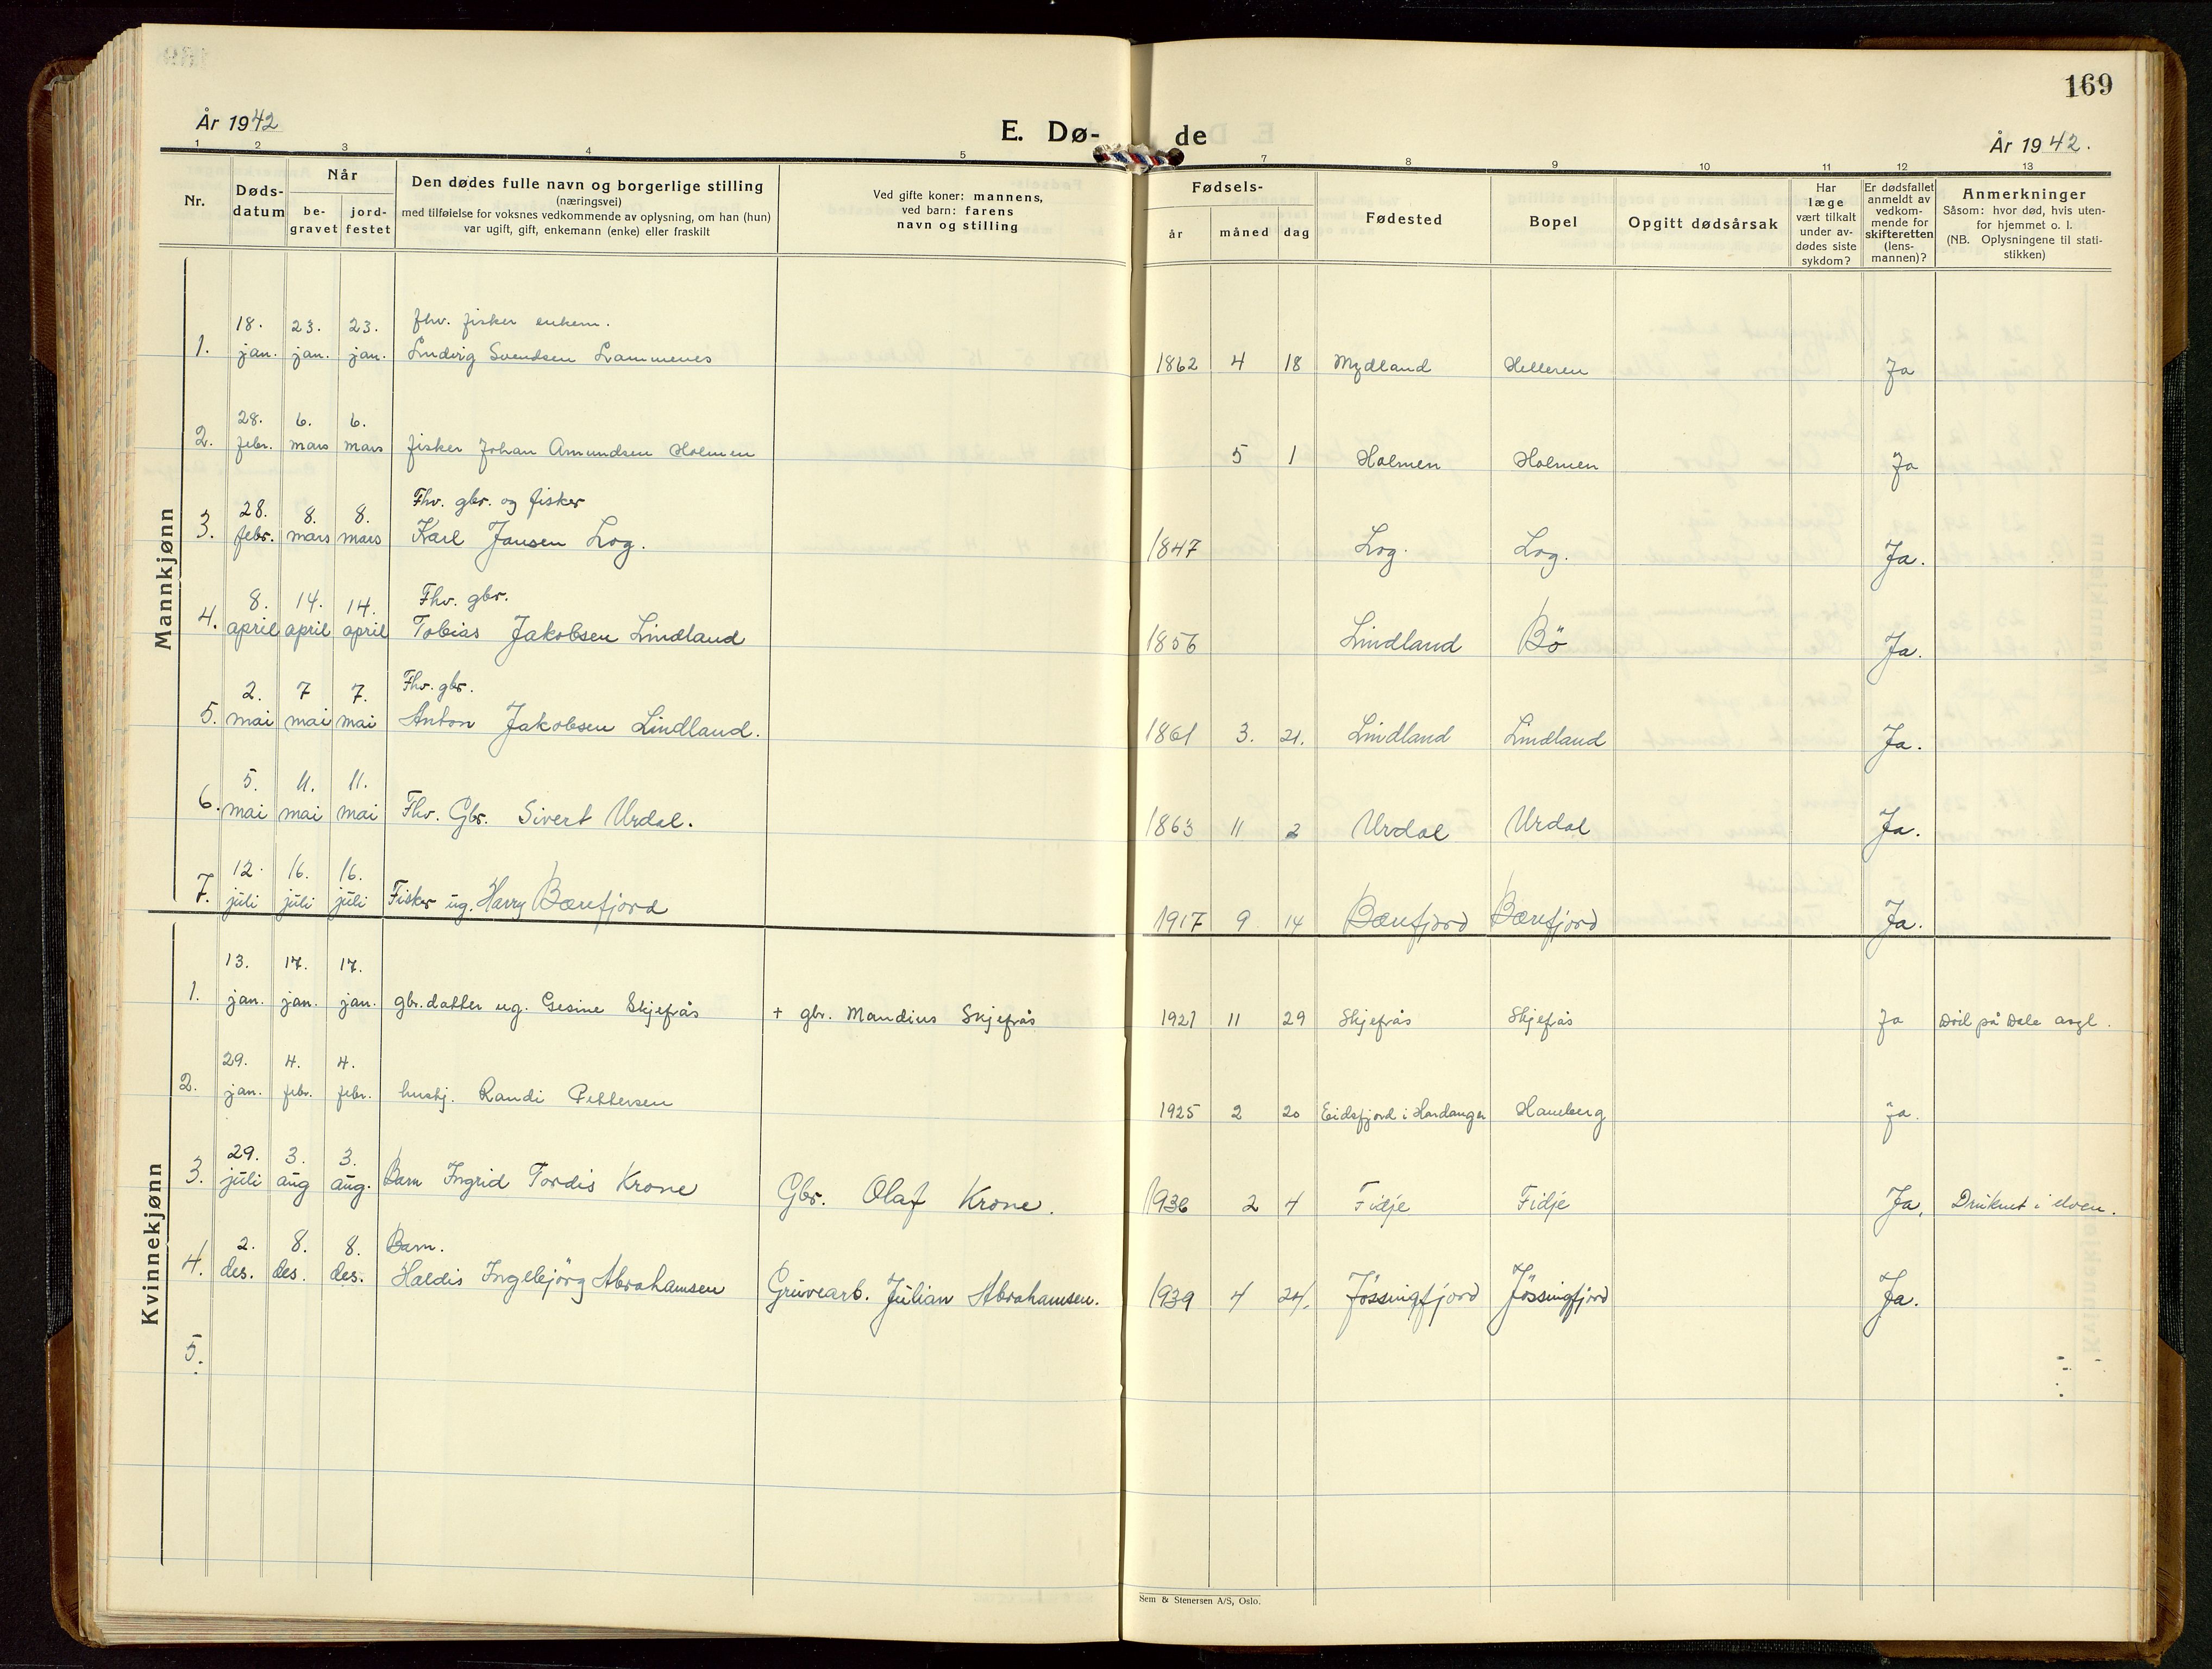 169
År 1942
E. Dø- de
År 1942.
1 2 3 4 5 7 8 9 10 11 12 13
Nr.
Døds-
datum
Når
be-
gravet
jord-
festet
Den dødes fulle navn og borgerlige stilling
(næringsvei)
med tilføielse for voksnes vedkommende av oplysning, om han (hun)
var ugift, gift, enkemann (enke) eller fraskilt
Ved gifte koner: mannens,
ved barn: farens
navn og stilling
Fødsels-
år måned dag
Fødested
Bopel
Opgitt dødsårsak
Har
læge
vært tilkalt
under av-
dødes siste
sykdom?
Er dødsfallet
anmeldt av
vedkom-
mende for
skifteretten
(lens-
mannen)?
Anmerkninger
Såsom: hvor død, hvis uten-
for hjemmet o. l.
(NB. Oplysningene til stati-
stikken)
Mannkjønn
18. 23. 23. fhv. fisker enkem.
1. jan. jan. jan. Ludvig Svendsen Lammenes 1862 4 18 Mydland Helleren Ja
28. 6. 6.
2. febr. mars mars fisker Johan Amundsen Holmen 5 1 Holmen Holmen Ja
28. 8. 8. Fhv. gbr. og fisker
3. febr. mars mars Karl Jansen Log. 1847 Log. Log. Ja.
8. 14. 14. Fhv. gbr.
4. april april april Tobias Jakobsen Lindland 1856 Lindland Bö Ja.
2. 7 7. Fhv. gbr.
5. mai mai mai Anton Jakobsen Lindland. 1861 3. 21. Lindland Lindland Ja.
5. 11. 11.
6. mai mai mai Fhv. Gbr. Sivert Urdal. 1863 11 2 Urdal Urdal Ja.
12. 16. 16.
7. juli juli juli Fisker ug. Harry Bærefjord 1917 9 14 Bærefjord Bærefjord Ja.
Kvinnekjønn
13. 17. 17.
1. jan. jan. jan. gbr. datter ug. Gesine Skjefrås + gbr. Mandius Skjefrås 1921 11 29 Skjefrås Skjefrås Ja Död på Dale asyl.
29. 4. 4.
2. jan. febr. febr. hushj. Randi Pettersen 1925 2 20 Eidsfjord i Hardanger Haneberg Ja.
29. 3. 3.
3. juli aug aug. Barn Ingrid Tordis Krone Gbr. Olaf Krone. 1936 2 4 Fidje Fidje Ja. Druknet i elven.
2. 8. 8. Barn.
4. des. des. des. Haldis Ingebjörg Abrahamsen Gruvearb. Julian Abrahamsen. 1939 4 24. Jössingfjord Jössingfjord Ja.
5.
Sem & Stenersen A/S, Oslo.